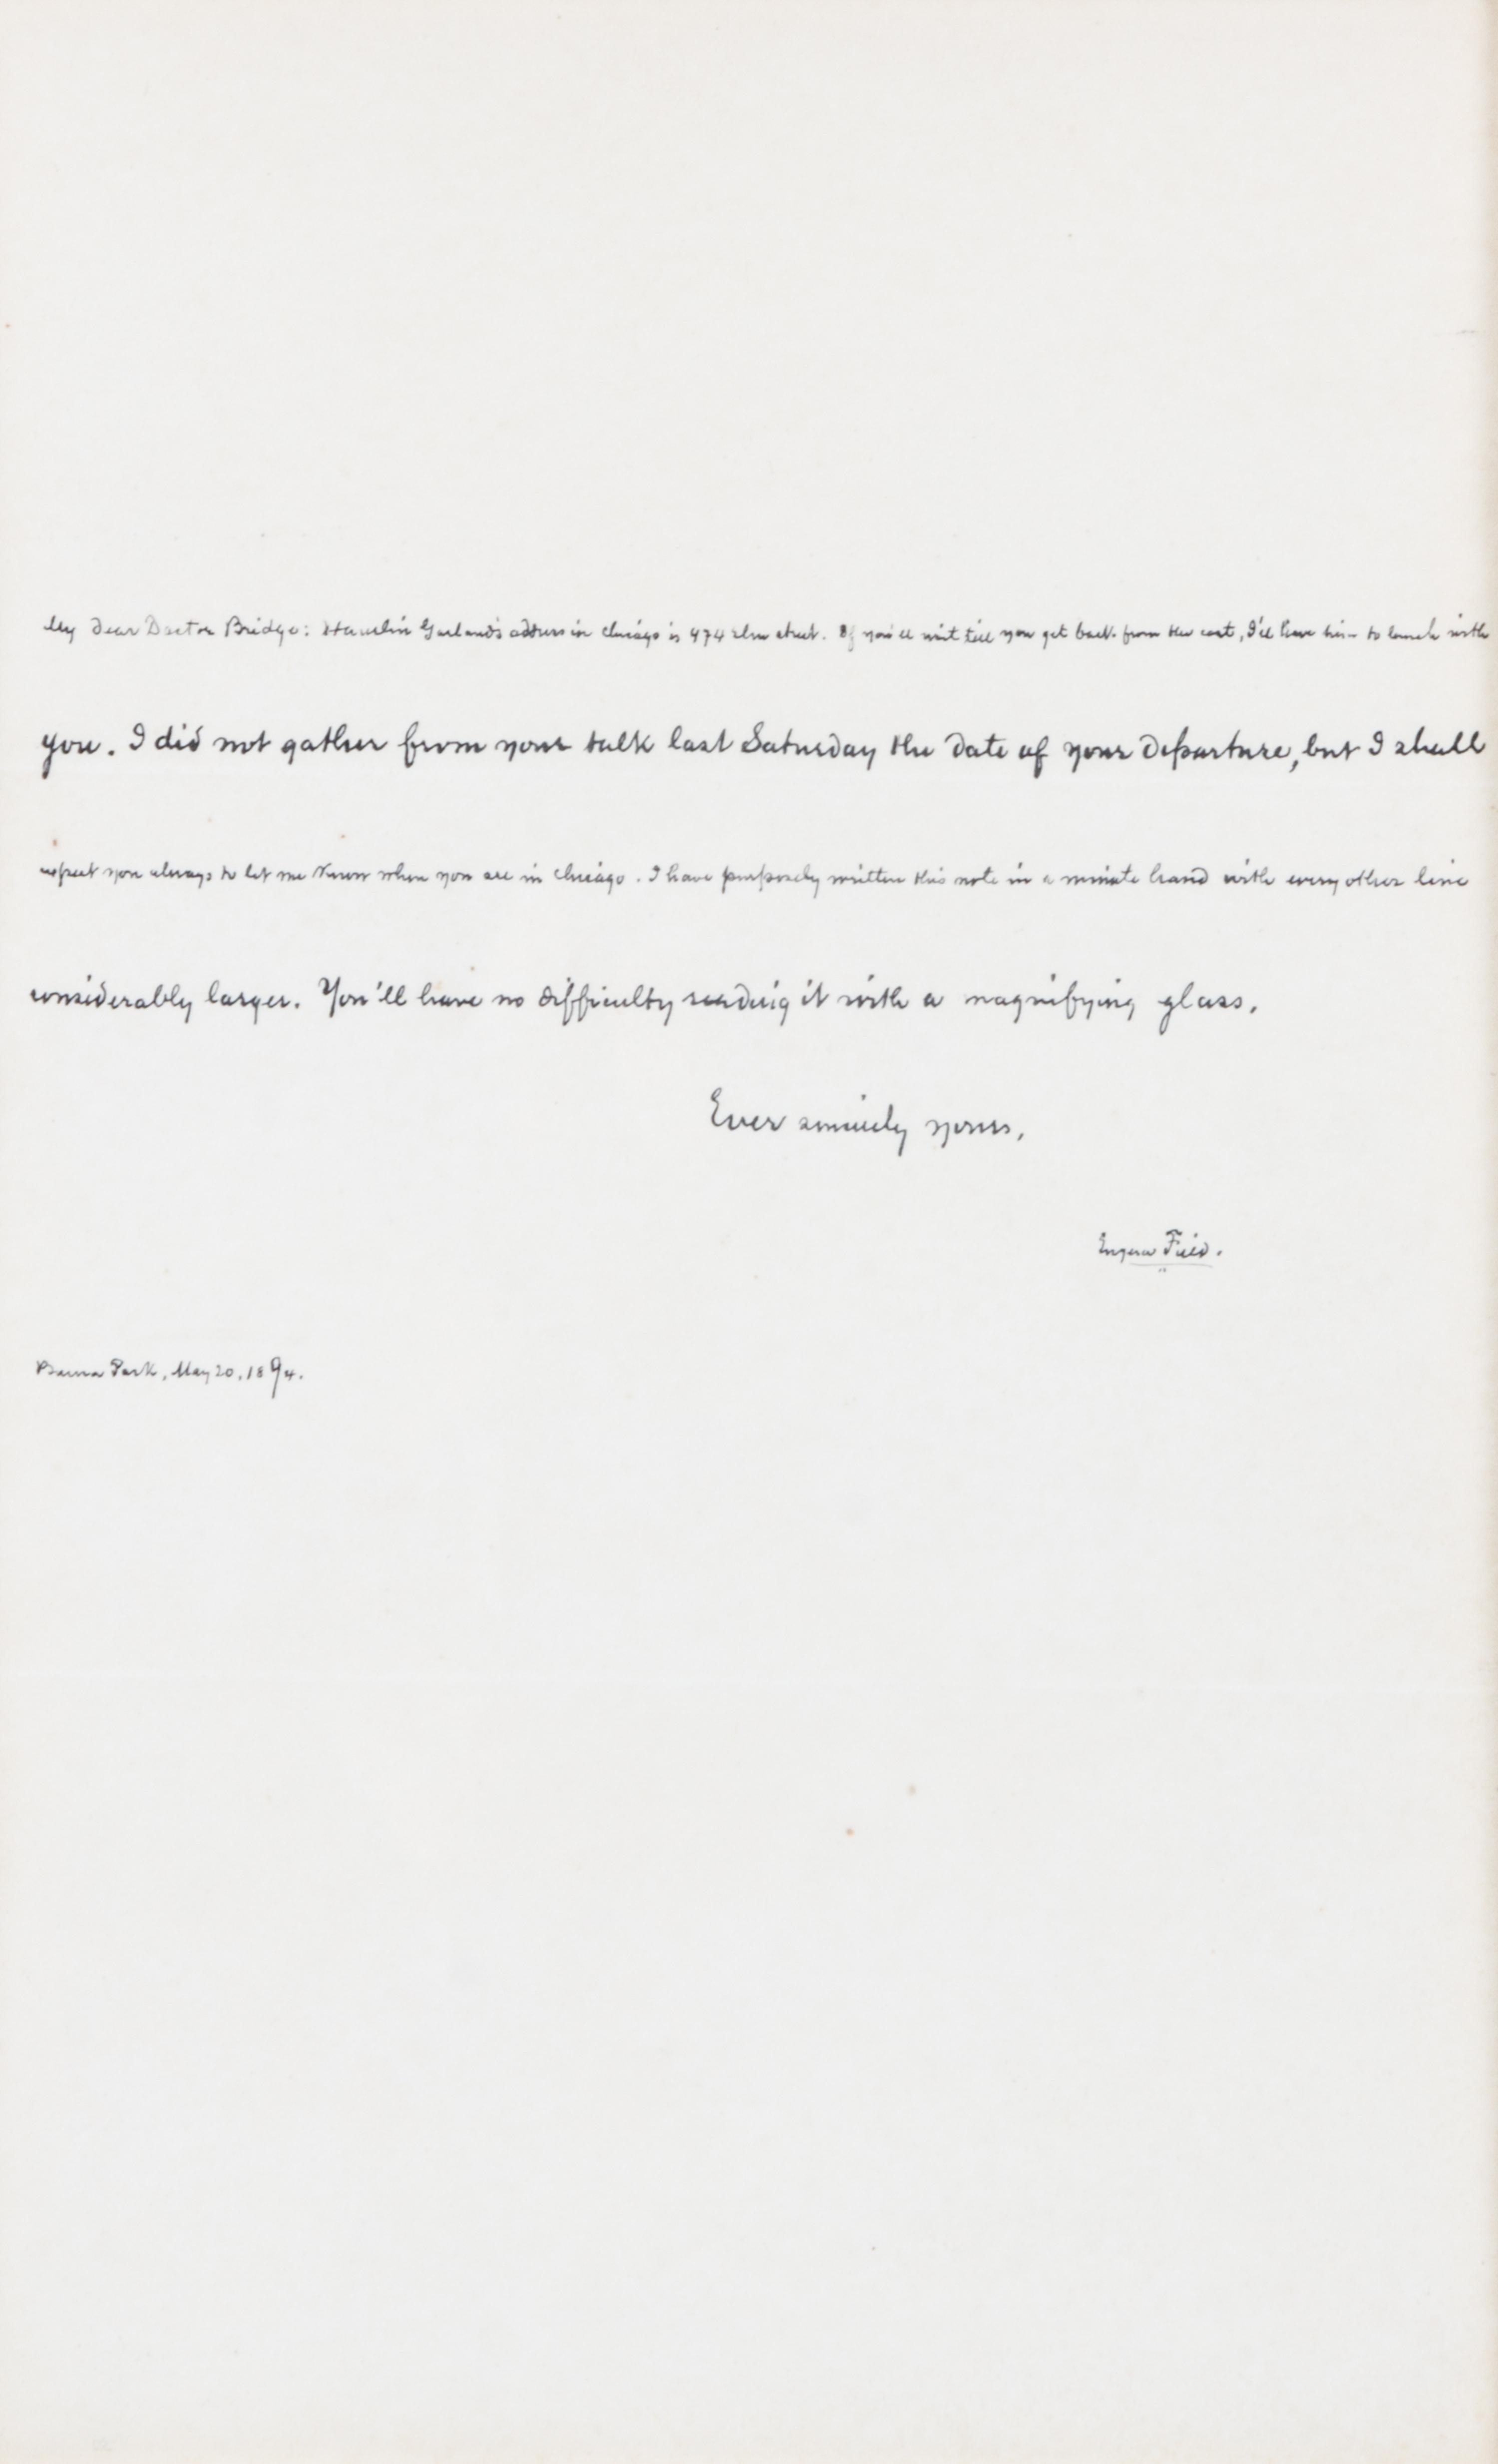 My Dear Doctor Bridge: Hamlin Garland's address in Chicago is 474 Elm street. If you'll wait till you get back from the east, I'll have him to lunch with
you. I did not gather from your talk last Saturday the date of your departure, but I shall
expect you always to let me know when you are in Chicago. I have purposely written this note in a minute hand with every other line
considerably larger. You'll have no difficulty reading it with a magnifying glass.
Ever sincerely yours,
Eugene Field.
Buena Park, May 20, 1894.